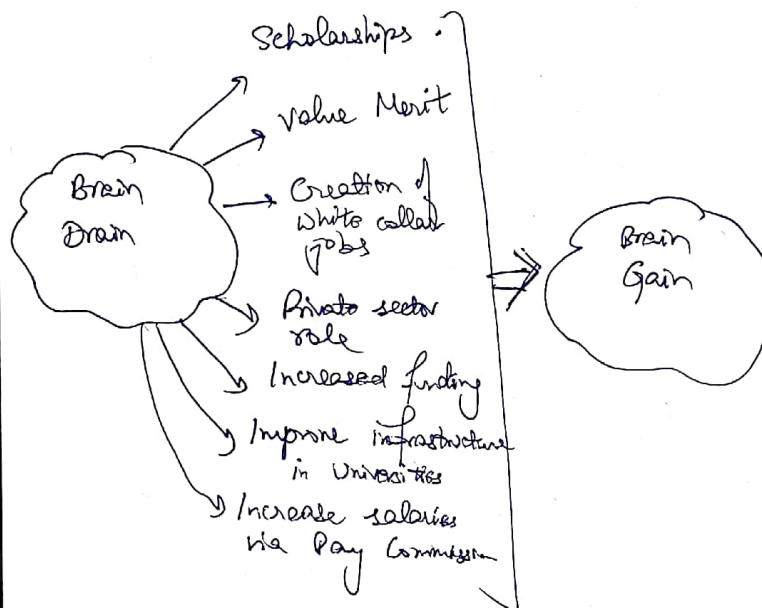 Scholarships .
Value Merit
Brain
Drain
Creation of
White collar
jobs
Private sector
role
Increased funding
Improve infrastructure
in Universities
Increase salaries
via Pay Commission
Brain
Gain